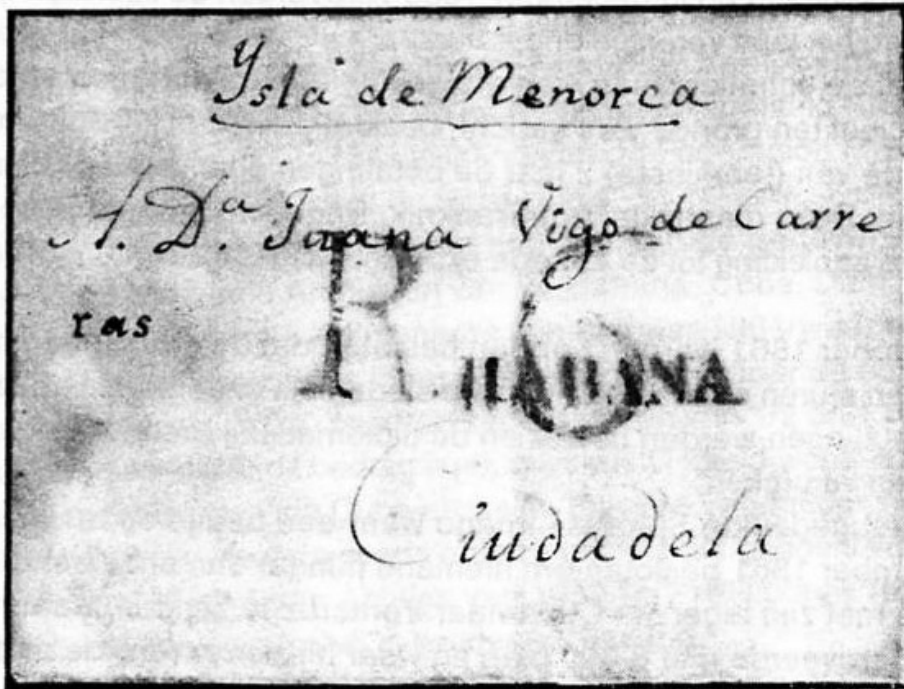 Ysla de Menorca
A. Dª. Juana Vigo de Carre
ras
R. 6
HABANA
Ciudadela